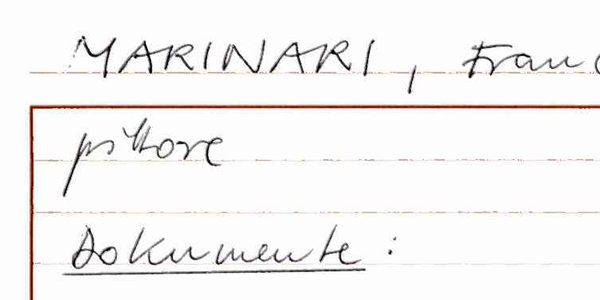 MARINARI, Franc
pittore
Dokumente: